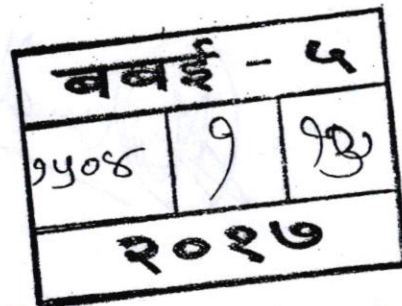 बबई - ५
१५०४ १
२०१७